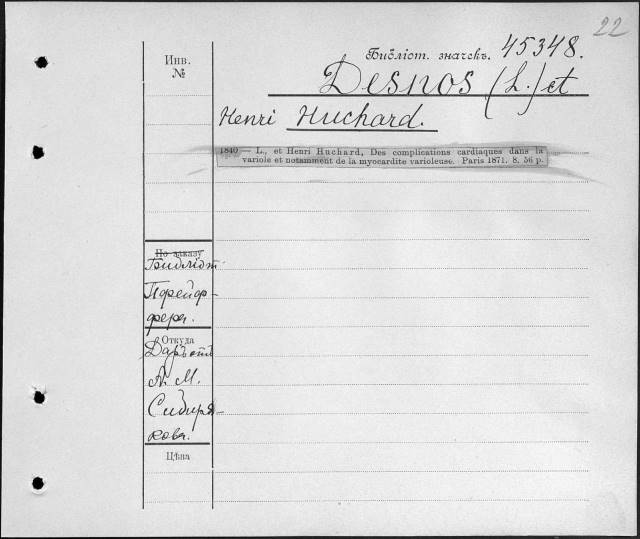 22
Инв.
№
Библіот. значекъ. 45348.
Desnos (L.) et
Henri Huchard.
1840 — L., et Henri Huchard, Des complications cardiaques dans la
variole et notamment de la myocardite varioleuse. Paris 1871. 8. 56 p.
По заказу
Библіот.
Пфейф-
фера.
Откуда
Даръ отъ
А. М.
Сибиря-
кова.
Цѣна